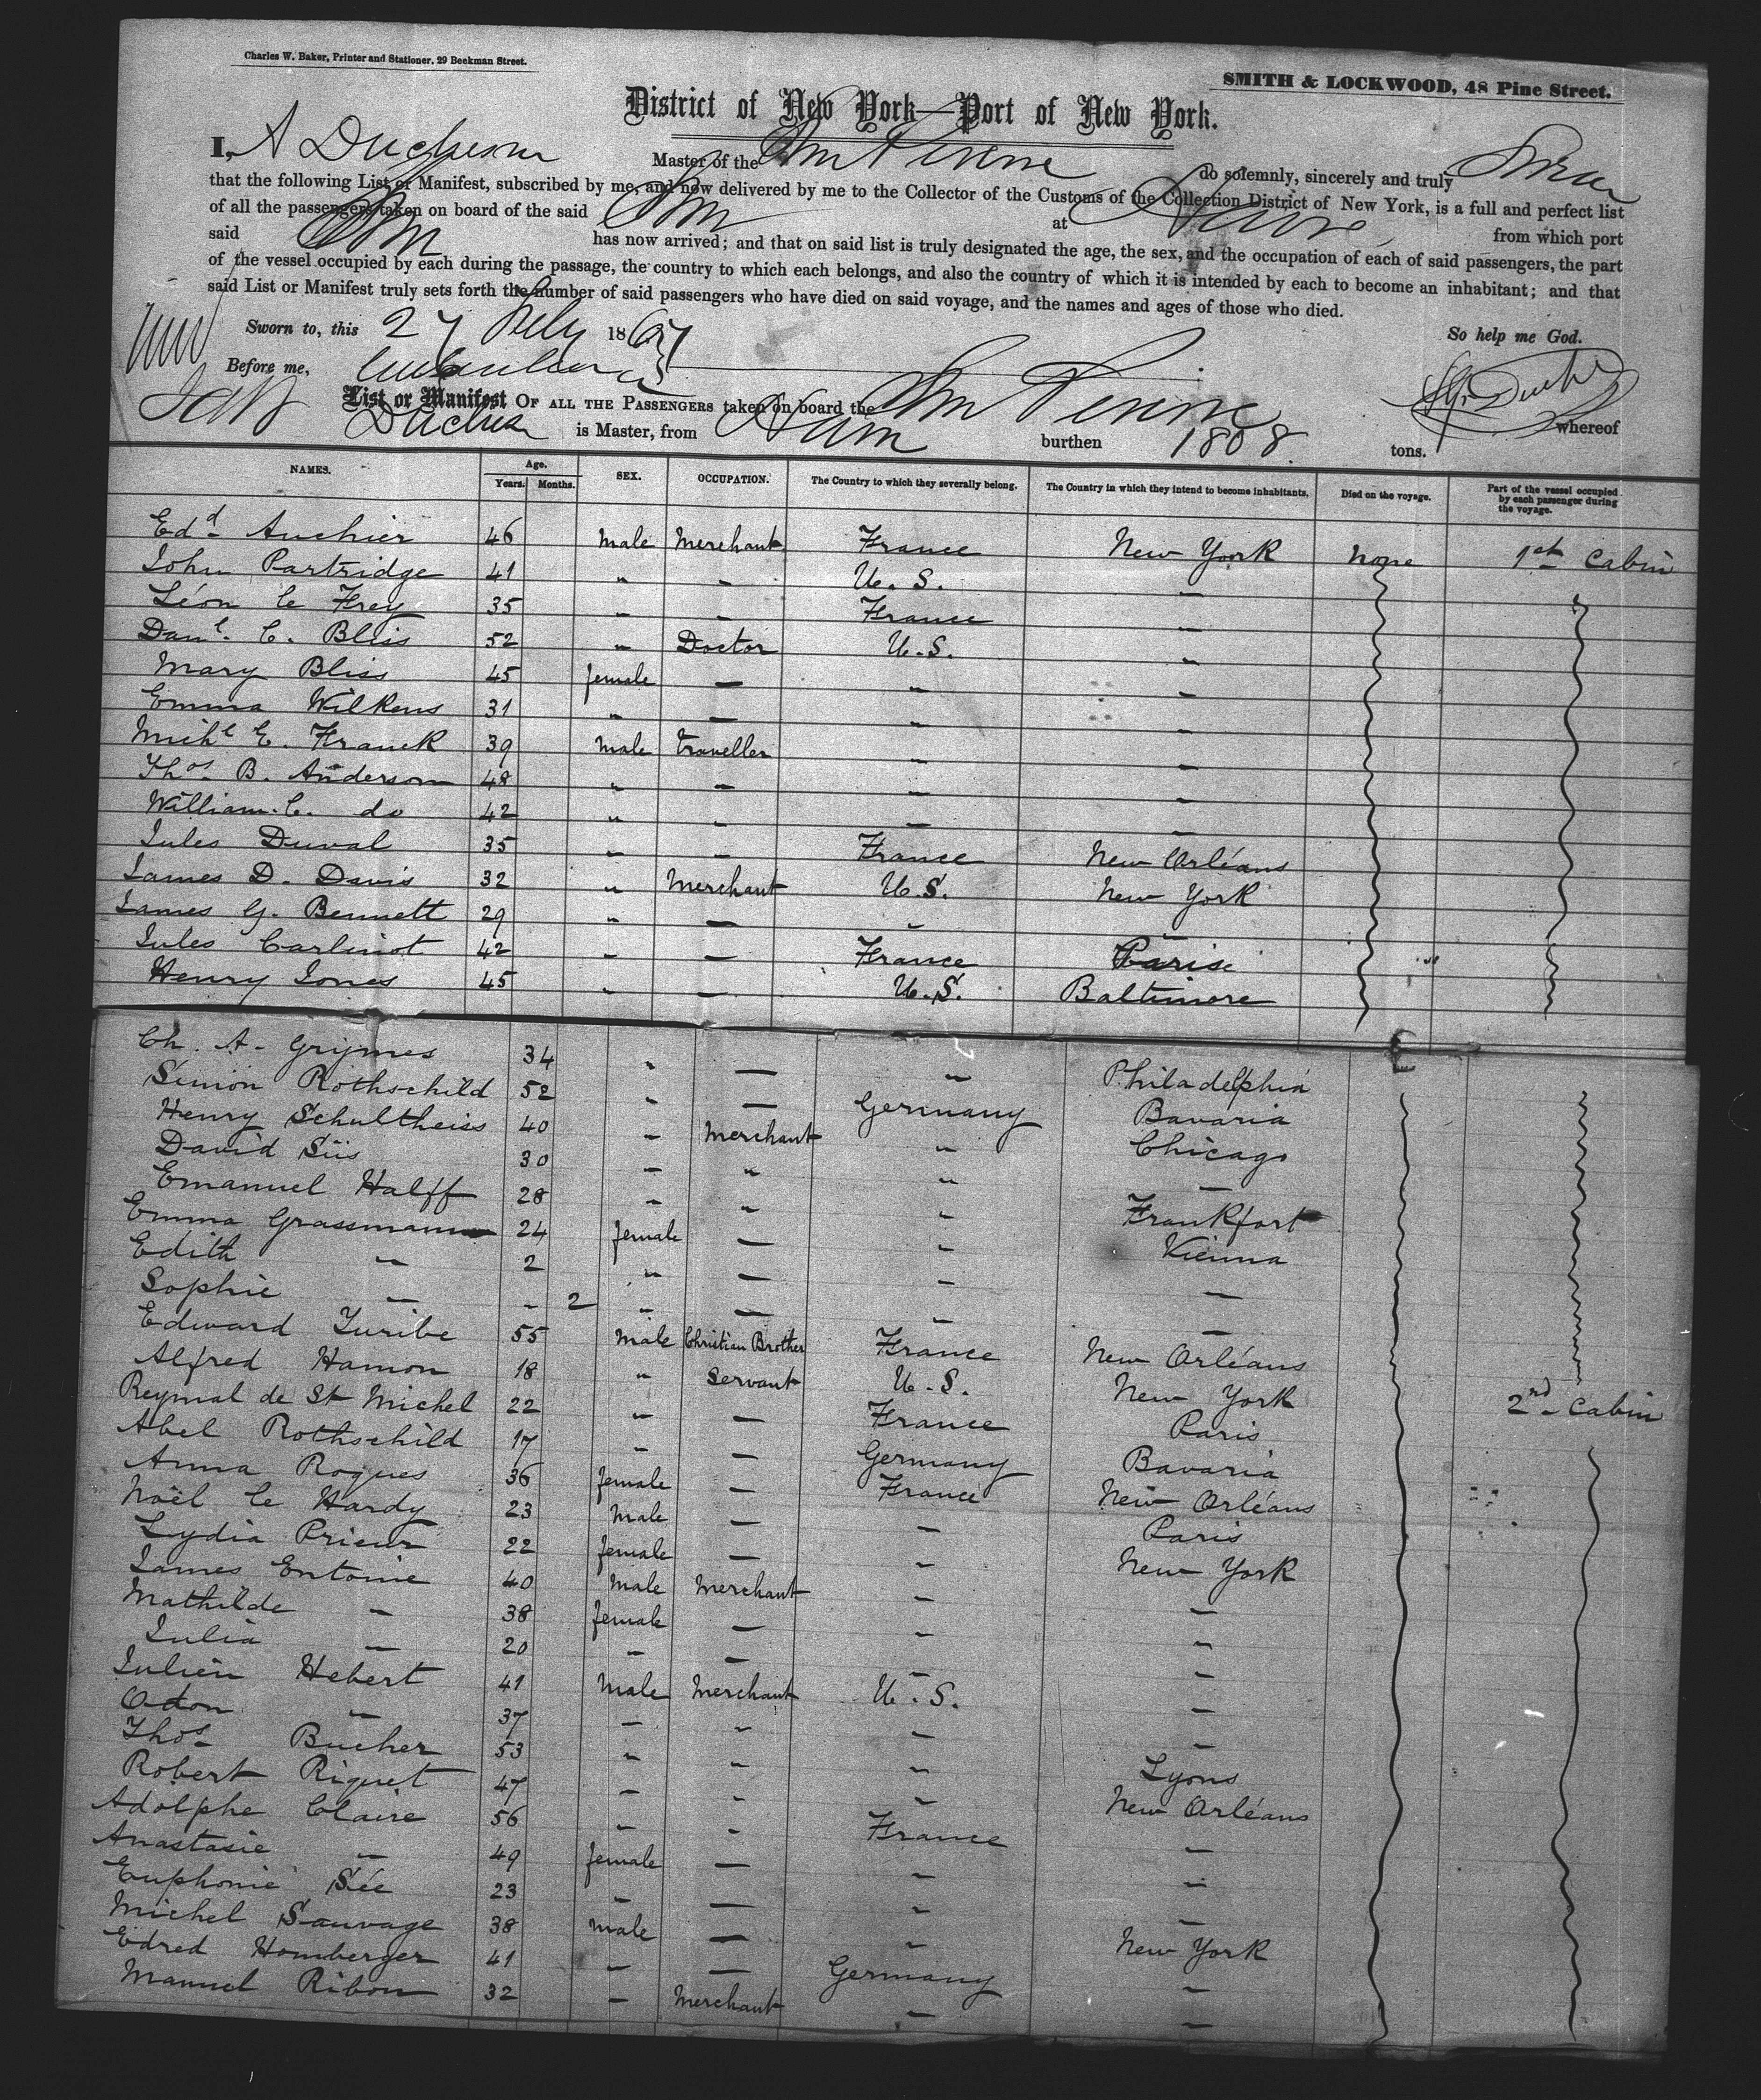 Charles W. Baker, Printer and Stationer, 29 Beekman Street.
SMITH & LOCKWOOD, 48 Pine Street.
District of New York—Port of New York.
I, A Duchesne Master of the do solemnly, sincerely and truly Swear
that the following List or Manifest, subscribed by me, and now delivered by me to the Collector of the Customs of the Collection District of New York, is a full and perfect list
of all the passengers taken on board of the said at Havre from which port
said has now arrived; and that on said list is truly designated the age, the sex, and the occupation of each of said passengers, the part
of the vessel occupied by each during the passage, the country to which each belongs, and also the country of which it is intended by each to become an inhabitant; and that
said List or Manifest truly sets forth the number of said passengers who have died on said voyage, and the names and ages of those who died.
Sworn to, this 27 1867 So help me God.
Before me,
List or Manifest OF ALL THE PASSENGERS taken on board the whereof
is Master, from burthen 1808 tons.
NAMES. Age. Years. Months. SEX. OCCUPATION. The Country to which they severally belong. The Country in which they intend to become inhabitants. Died on the voyage. Part of the vessel occupied by each passenger during the voyage.
Edd. Auchier 46 Male Merchant France New York None 1st Cabin
John Partridge 41 " - U. S. -
Léon le Frey 35 - - France -
Danl. C. Bliss 52 - Doctor U. S. -
Mary Bliss 45 female - - -
Emma Wilkens 31 - - - -
Michl E. Franck 39 Male traveller - -
Thos. B. Anderson 48 " - - -
William. C. do 42 " - - -
Jules Duval 35 - - France New Orléans
James D. Davis 32 " Merchant U. S. New York
James G. Bennett 29 " - - -
Jules Carlinot 42 - - France Paris
Henry Jones 45 - - U. S. Baltimore
Ch. A. Grymes 34 - - - Philadelphia
Simon Rothschild 52 - - Germany Bavaria
Henry Schultheiss 40 - Merchant " Chicago
David Süs 30 - " " -
Emanuel Halff 28 - " " Frankfort
Emma Grassmann 24 female - - Vienna
Edith - 2 " - - -
Sophie - - 2 - - - -
Edward Yuribe 55 Male Christian Brother France New Orléans
Alfred Hamon 18 " Servant U. S. New York 2nd Cabin
Reymal de St Michel 22 - - France Paris
Abel Rothschild 17 - - Germany Bavaria
Anna Rogues 36 female - France New Orléans
Noël le Hardy 23 Male - - Paris
Lydia Prieur 22 female - - New York
James Entoine 40 Male Merchant - -
Mathilde - 38 female - - -
Julia - 20 - - - -
Julien Hebert 41 Male Merchant U. S. -
Odon - 37 - " - -
Thos. Bucher 53 " - - Lyons
Robert Riguet 47 - - - New Orléans
Adolphe Claire 56 - - France -
Anastasie - 49 female - - -
Euphonie Sée 23 - - - -
Michel Sauvage 38 Male - - New York
Edred Homberger 41 - - Germany -
Manuel Ribon 32 - Merchant - -